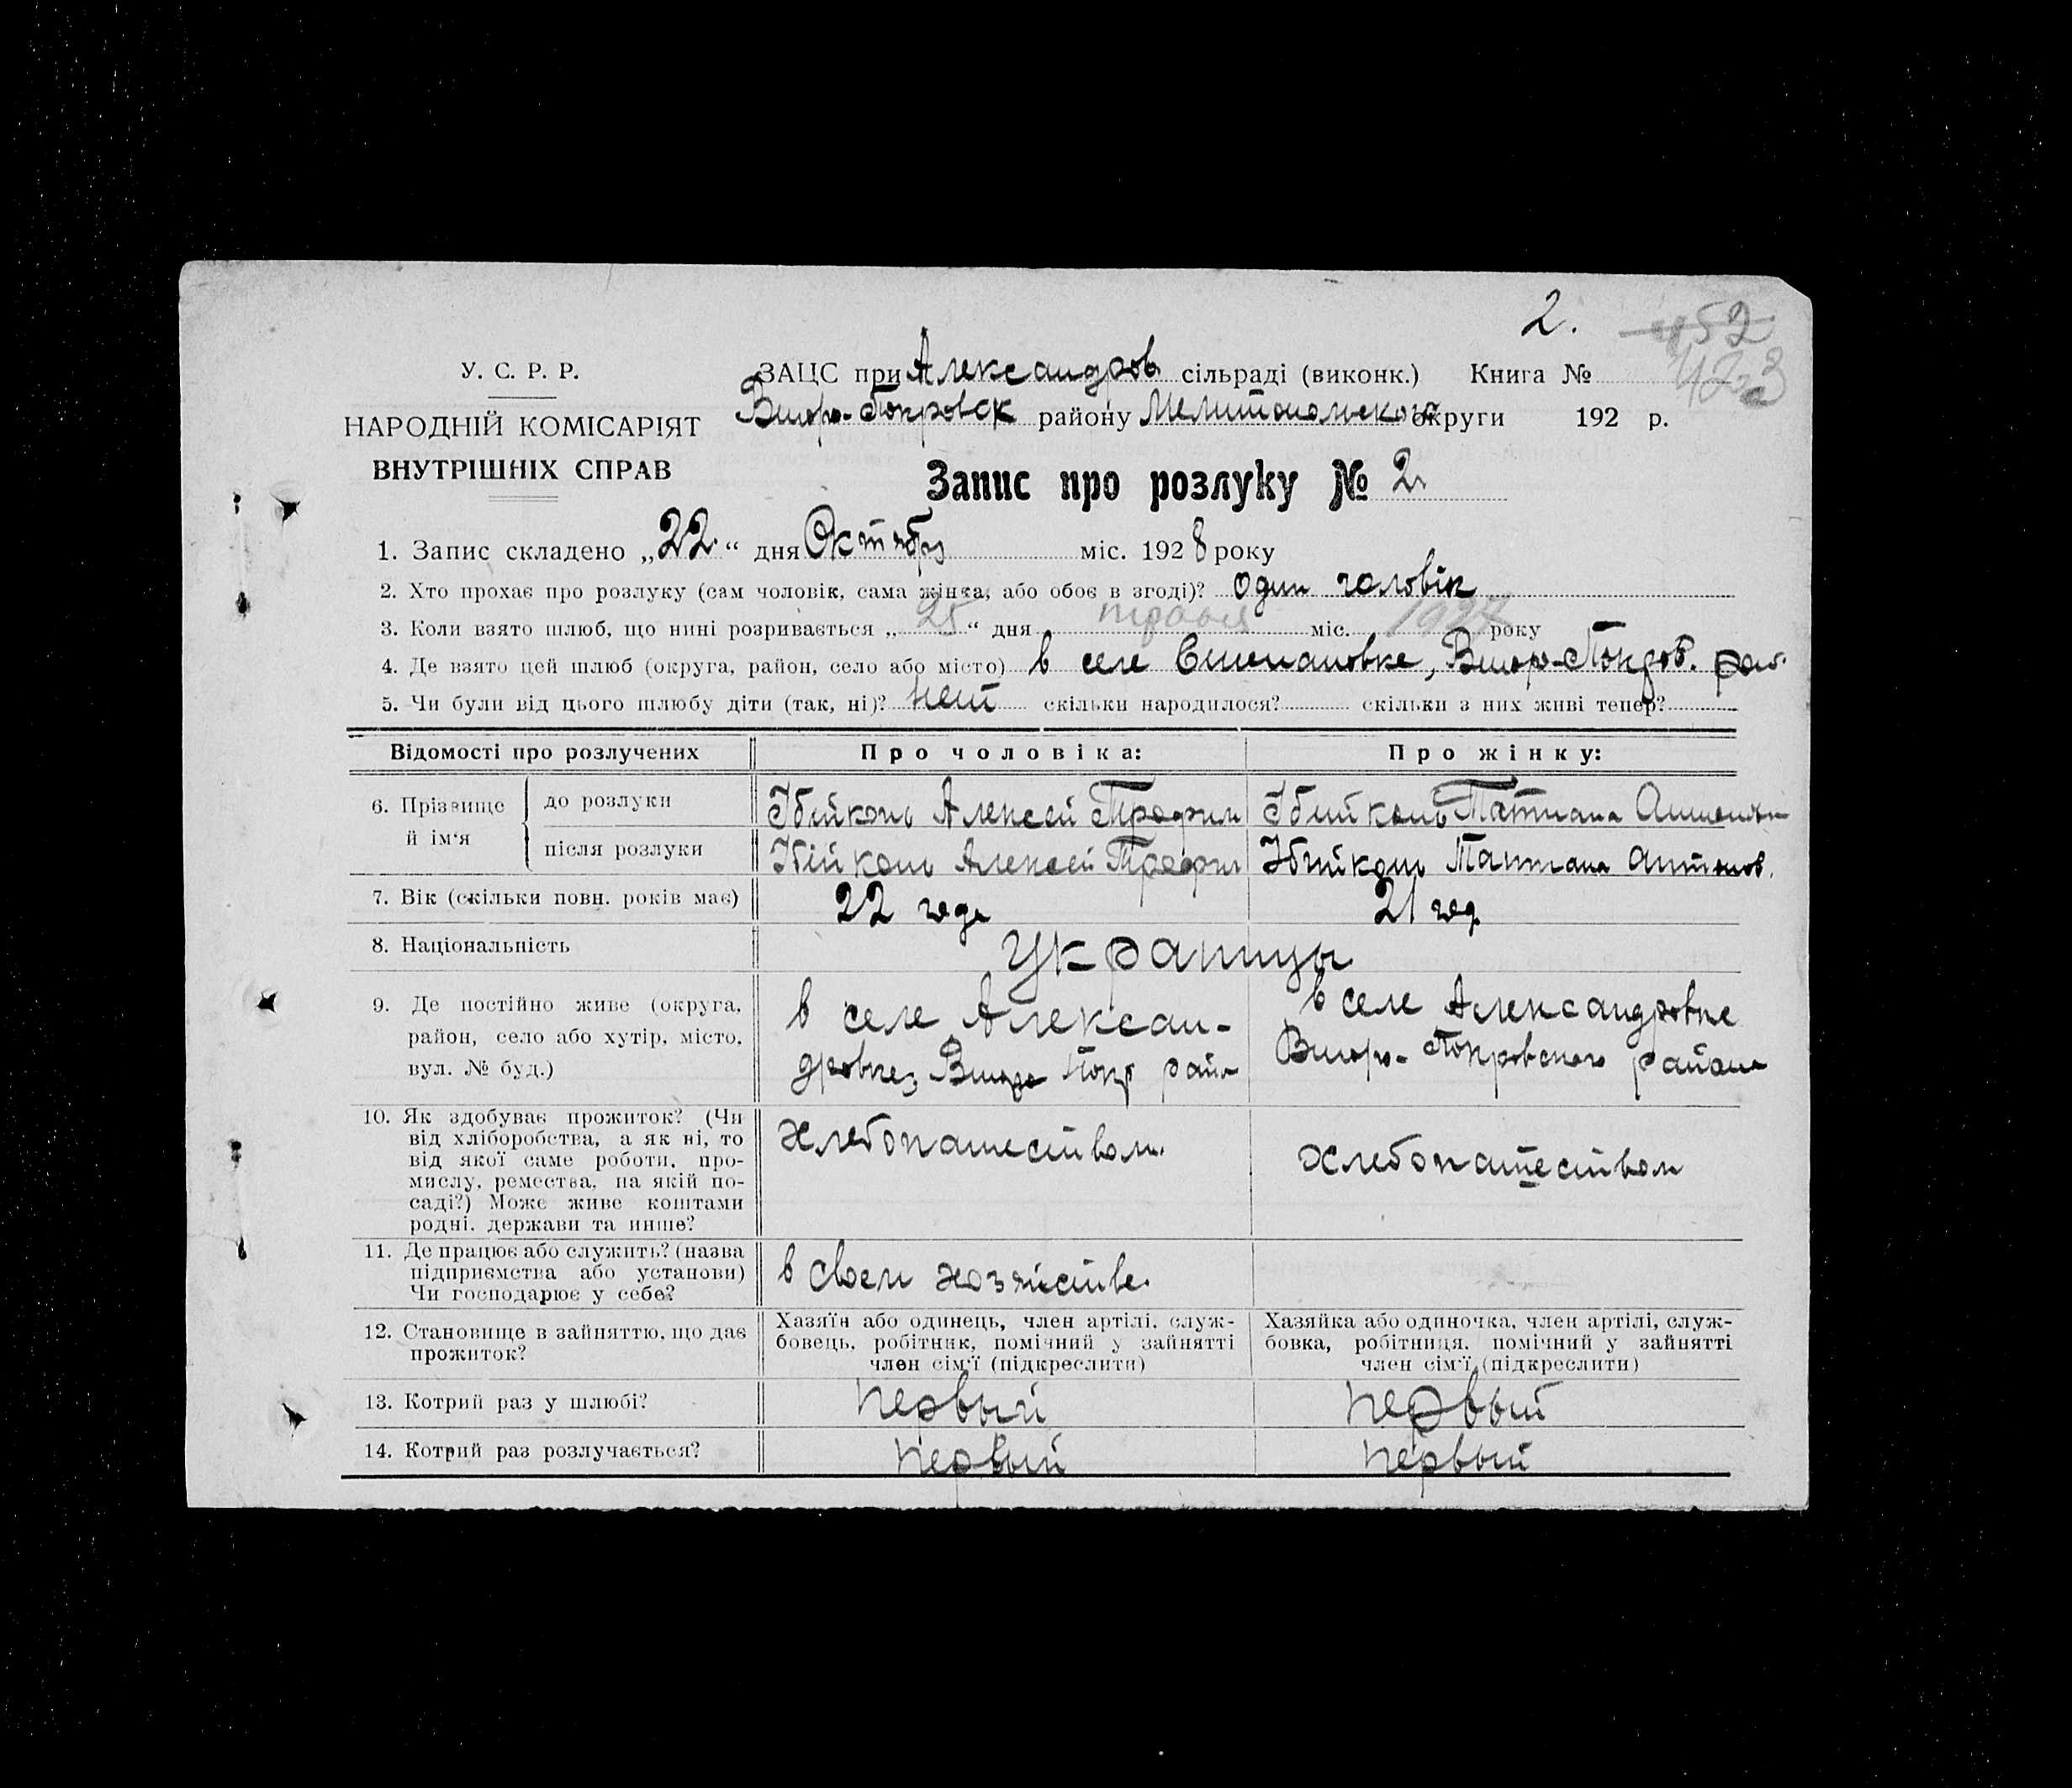 2.
452
423
У. С. Р. Р.
НАРОДНІЙ КОМІСАРІЯТ
ВНУТРІШНІХ СПРАВ
ЗАЦС при Александров сільраді (виконк.) Книга №
Втор-Покровск району Мелитопольского округи 192 р.
Запис про розлуку № 2
1. Запис складено „22“ дня Октября міс. 1928 року
2. Хто прохає про розлуку (сам чоловік, сама жінка, або обоє в згоді)? один чоловік
3. Коли взято шлюб, що нині розривається „25“ дня травня міс. 1927 року
4. Де взято цей шлюб (округа, район, село або місто) в селе Степановке, Втор-Покров. рай.
5. Чи були від цього шлюбу діти (так, ні)? нет скільки народилося? скільки з них живі тепер?
Відомості про розлучених Про чоловіка: Про жінку:
6. Прізвище й ім'я
до розлуки Убийконь Алексей Трофим Убийконь Татиана Антонов
після розлуки Убийконь Алексей Трофим Убийконь Татиана Антонов.
7. Вік (скільки повн. років має) 22 года 21 год
8. Національність Украинцы
9. Де постійно живе (округа, район, село або хутір, місто, вул. № буд.)
в селе Алексан-
дровке, Второ Покр райо
в селе Александровке
Второ-Покровского района
10. Як здобуває прожиток? (Чи
від хліборобства, а як ні, то
від якої саме роботи, про-
мислу, ремества, на якій по-
саді?) Може живе коштами
родні, держави та инше?
Хлебопашеством.
Хлебопашеством
11. Де працює або служить? (назва
підприємства або установи)
Чи господарює у себе?
в своем хозяйстве.
12. Становище в зайняттю, що дає
прожиток?
Хазяїн або одинець, член артілі, служ-
бовець, робітник, помічний у зайнятті
член сім'ї (підкреслити)
Хазяйка або одиночка, член артілі, служ-
бовка, робітниця, помічний у зайнятті
член сім'ї (підкреслити)
13. Котрий раз у шлюбі? первый первый
14. Котрий раз розлучається? первый первый